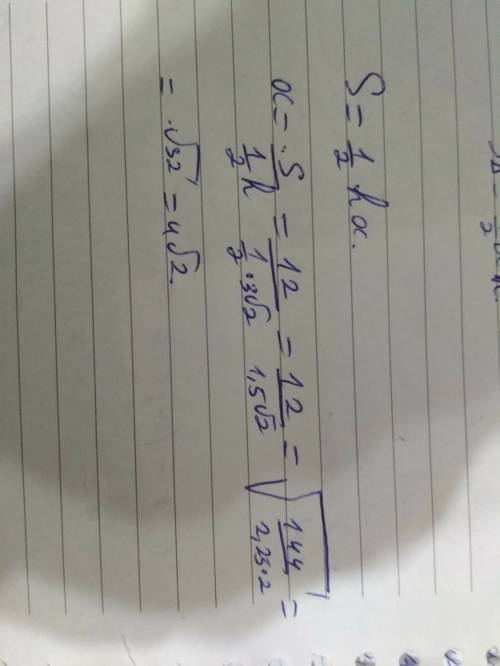 S = 1/2 hα.
α = S / (1/2 h) = 12 / (1/2 · 3√2) = 12 / (1,5√2) = √(144 / (2,25·2)) =
= √32 = 4√2.